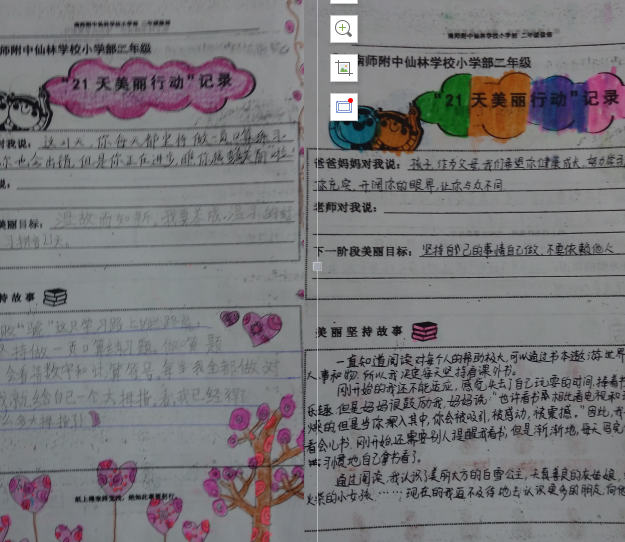 南师附中仙林学校小学部 二年级
师附中仙林学校小学部二年级
"21 天美丽行动"记录
对我说：这21天，你每天都坚持做一页口算练习
你也会出错，但是你正在进步
说：
美丽目标：温故而知新，我要
持故事
这只学习路上的
持做一页口算练习题，做算题
会看清数字和计算符号，每当我全部做对
我就给自己一个大拇指，看我已经得
么多大拇指了！
纸上得来终觉浅，绝知此事要躬行。
南师附中仙林学校小学部 二年级
南师附中仙林学校小学部二年级
"21 天美丽行动"记录
爸爸妈妈对我说：孩子，作为父母，我们希望你健康成长，努力学
你充实，开阔你的眼界，让你与众不同
老师对我说：
下一阶段美丽目标：坚持自己的事情自己做，不要依赖他人
美丽坚持故事
一直知道阅读对每个人的帮助极大，可以通过书本遨游世界
人事和物，所以我决定每天坚持看课外书。
刚开始的我还不能适应，感觉失去了自己玩耍的时间，捧着书
乐趣，但是妈妈很鼓励我，妈妈说："也许看书
燥的但是当你深入其中，你会被吸引，被感动，被震撼。"因此，我
看会儿书，刚开始还需要别人提醒我看书，但是渐渐地，每天写完
习惯地自己拿书看了。
通过阅读，我认识了美丽大方的白雪公主，天真善良的灰姑娘，
火柴的小女孩……现在的我迫不及待地去认识更多的朋友，向他